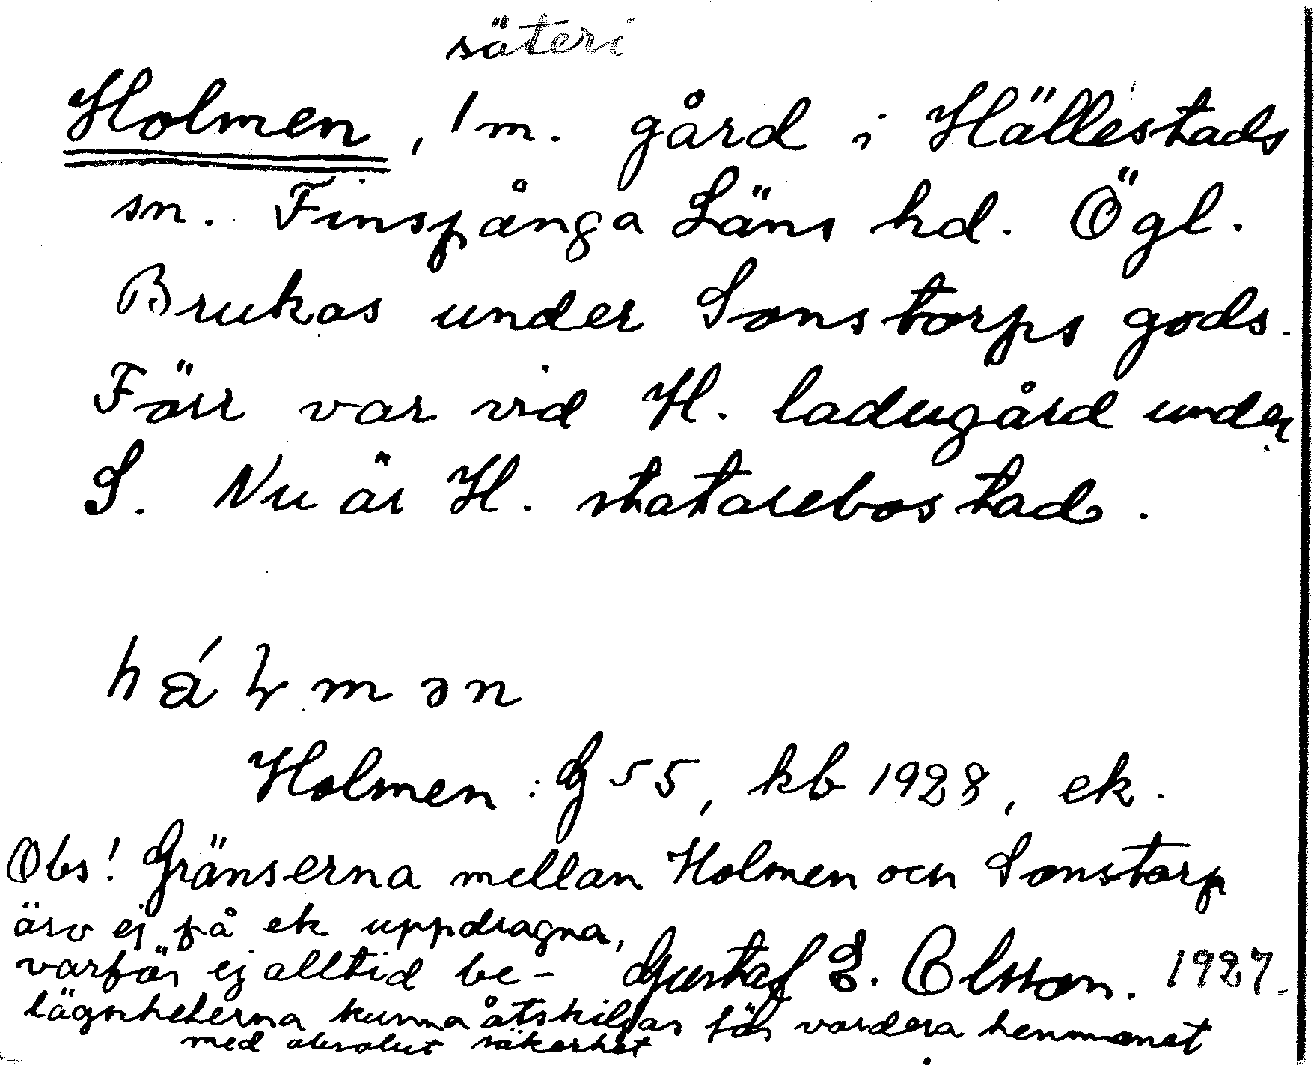 säteri
Holmen, 1 m. gård i Hällestads
sn. Finspånga Läns hd. Ögl.
Brukas under Sonstorps gods.
Förr var vid H. ladugård under
S. Nu är H. statarebostad.
Holmen: G 55, kb 1928, ek.
Obs! Gränserna mellan Holmen och Sonstorp
äro ej på ek uppdragna,
varför ej alltid be-
Gustaf E. Olsson. 1927.
lägenheterna kunna åtskiljas för vardera hemmanet
med absolut säkerhet